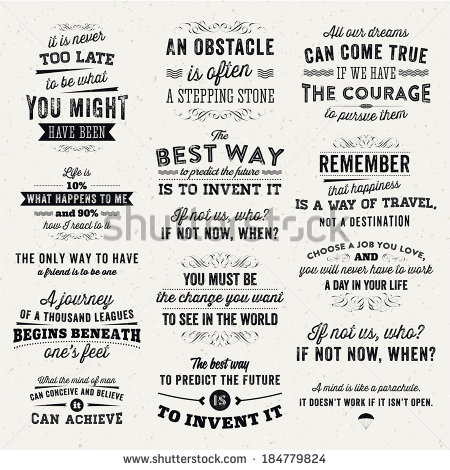 it is never
TOO LATE
to be what
YOU MIGHT
HAVE BEEN
Life is
10%
WHAT HAPPENS TO ME
and 90%
how I react to it
THE ONLY WAY TO HAVE
a friend is to be one
A journey
OF A THOUSAND LEAGUES
BEGINS BENEATH
one's feet
What the mind of man
CAN CONCEIVE AND BELIEVE
it
CAN ACHIEVE
AN OBSTACLE
is often
A STEPPING STONE
The
BEST WAY
to predict the future
IS TO INVENT IT
If not us, who?
IF NOT NOW, WHEN?
YOU MUST BE
the change you want
TO SEE IN THE WORLD
The best way
TO PREDICT THE FUTURE
IS
TO INVENT IT
All our dreams
CAN COME TRUE
IF WE HAVE
THE COURAGE
to pursue them
REMEMBER
that happiness
IS A WAY OF TRAVEL,
NOT A DESTINATION
CHOOSE A JOB YOU LOVE,
AND
you will never have to work
A DAY IN YOUR LIFE
If not us, who?
IF NOT NOW, WHEN?
A mind is like a parachute.
IT DOESN'T WORK IF IT ISN'T OPEN.
shutterstock
www.shutterstock.com · 184779824